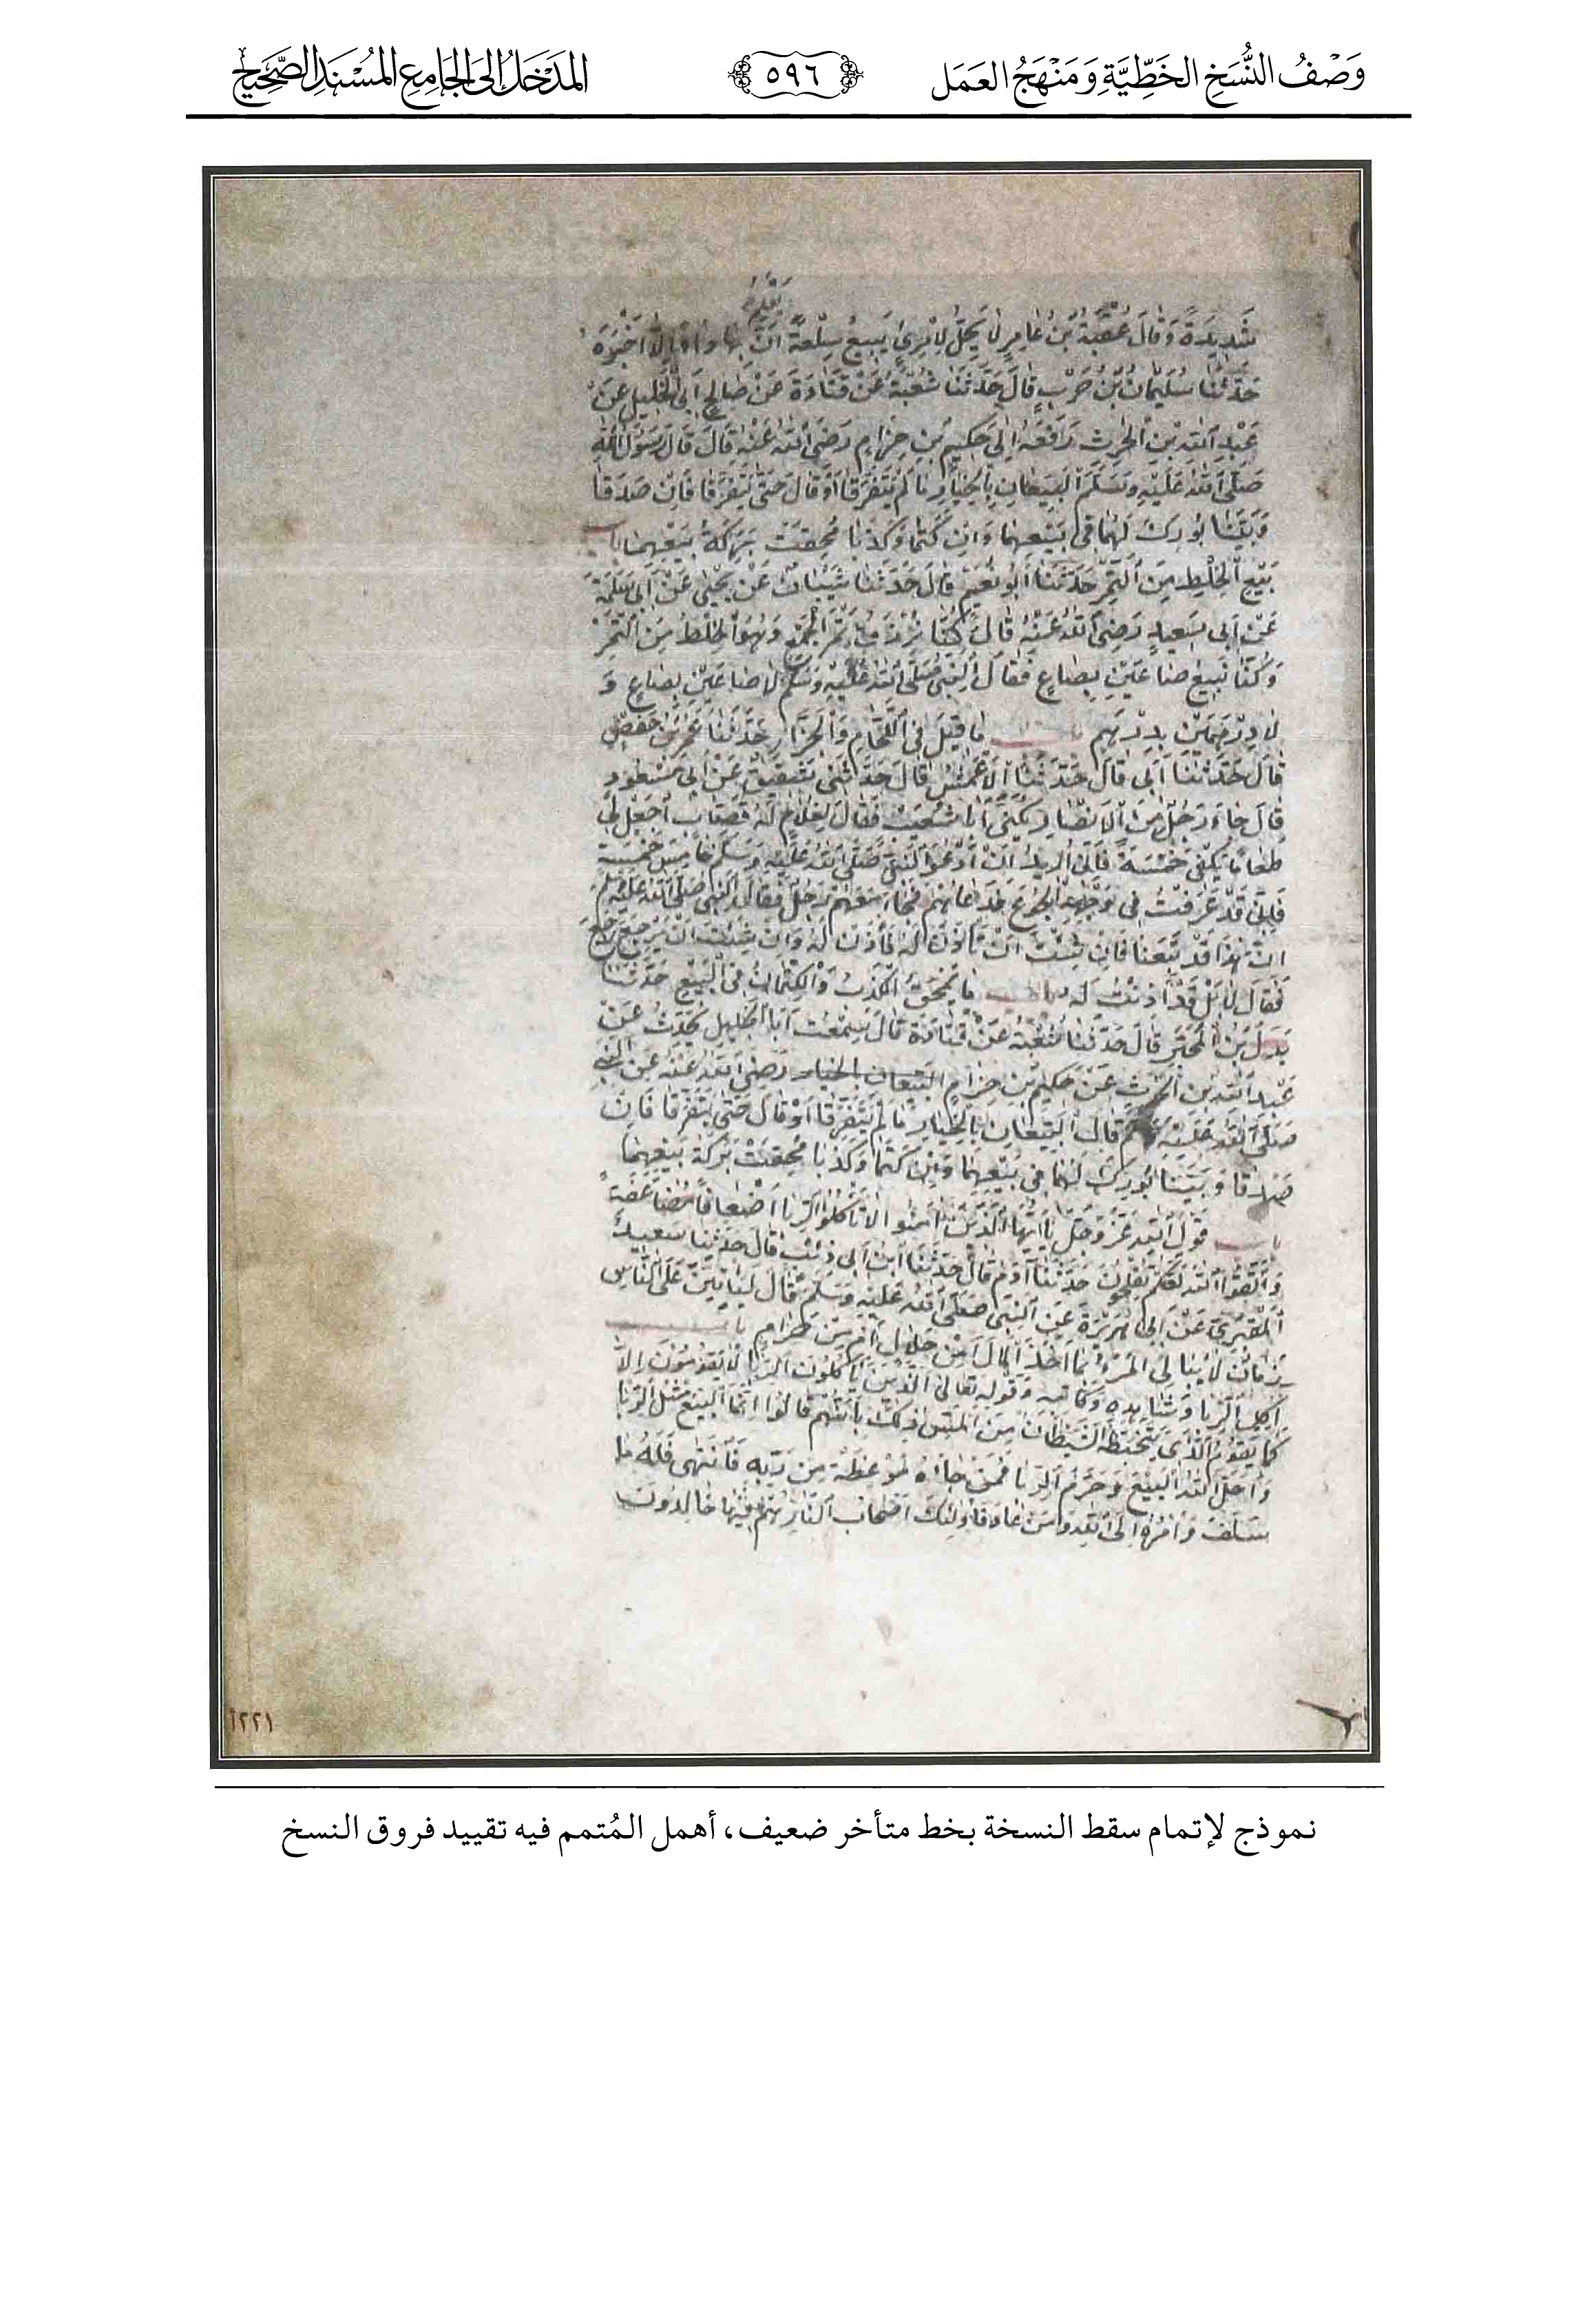 وَصْفُ النُّسَخِ الخَطِّيَّةِ وَمَنْهَجُ العَمَلِ
٥٩٦
المَدْخَلُ إِلَى الجَامِعِ المُسْنَدِ الصَّحِيحِ
يَعْلَمُ
شَدِيدَةً وَقَالَ عُقْبَةُ بْنُ عَامِرٍ لَا يَحِلُّ لِامْرِئٍ يَبِيعُ سِلْعَةً أَنَّ بِهَا دَاءً إِلَّا أَخْبَرَهُ
حَدَّثَنَا سُلَيْمَانُ بْنُ حَرْبٍ قَالَ حَدَّثَنَا شُعْبَةُ عَنْ قَتَادَةَ عَنْ صَالِحٍ أَبِي الْخَلِيلِ عَنْ
عَبْدِ اللهِ بْنِ الْحرِثِ رَفَعَهُ إِلَى حَكِيمِ بْنِ حِزَامٍ رَضِيَ اللهُ عَنْهُ قَالَ قَالَ رَسُولُ اللهِ
صَلَّى اللهُ عَلَيْهِ وَسَلَّمَ الْبَيِّعَانِ بِالْخِيَارِ مَا لَمْ يَتَفَرَّقَا أَوْ قَالَ حَتَّى يَتَفَرَّقَا فَإِنْ صَدَقَا
وَبَيَّنَا بُورِكَ لَهُمَا فِي بَيْعِهِمَا وَإِنْ كَتَمَا وَكَذَبَا مُحِقَتْ بَرَكَةُ بَيْعِهِمَا باب
بَيْعِ الْخِلْطِ مِنَ التَّمْرِ حَدَّثَنَا أَبُو نُعَيْمٍ قَالَ حَدَّثَنَا شَيْبَانُ عَنْ يَحْيَى عَنْ أَبِي سَلَمَةَ
عَنْ أَبِي سَعِيدٍ رَضِيَ اللهُ عَنْهُ قَالَ كُنَّا نُرْزَقُ تَمْرَ الْجَمْعِ وَهُوَ الْخِلْطُ مِنَ التَّمْرِ
وَكُنَّا نَبِيعُ صَاعَيْنِ بِصَاعٍ فَقَالَ النَّبِيُّ صَلَّى اللهُ عَلَيْهِ وَسَلَّمَ لَا صَاعَيْنِ بِصَاعٍ وَ
لَا دِرْهَمَيْنِ بِدِرْهَمٍ باب مَا قِيلَ فِي اللَّحَّامِ وَالْجَزَّارِ حَدَّثَنَا عُمَرُ بْنُ حَفْصٍ
قَالَ حَدَّثَنَا أَبِي قَالَ حَدَّثَنَا الْأَعْمَشُ قَالَ حَدَّثَنِي شَقِيقٌ عَنْ أَبِي مَسْعُودٍ
قَالَ جَاءَ رَجُلٌ مِنَ الْأَنْصَارِ يُكْنَى أَبَا شُعَيْبٍ فَقَالَ لِغُلَامٍ لَهُ قَصَّابٍ اجْعَلْ لِي
طَعَامًا يَكْفِي خَمْسَةً فَإِنِّي أُرِيدُ أَنْ أَدْعُوَ النَّبِيَّ صَلَّى اللهُ عَلَيْهِ وَسَلَّمَ خَامِسَ خَمْسَةٍ
فَإِنِّي قَدْ عَرَفْتُ فِي وَجْهِهِ الْجُوعَ فَدَعَاهُمْ فَجَاءَ مَعَهُمْ رَجُلٌ فَقَالَ النَّبِيُّ صَلَّى اللهُ عَلَيْهِ وَسَلَّمَ
إِنَّ هَذَا قَدْ تَبِعَنَا فَإِنْ شِئْتَ أَنْ تَأْذَنَ لَهُ فَأْذَنْ لَهُ وَإِنْ شِئْتَ أَنْ يَرْجِعَ رَجَعَ
فَقَالَ لَا بَلْ قَدْ أَذِنْتُ لَهُ باب مَا يَمْحَقُ الْكَذِبُ وَالْكِتْمَانُ فِي الْبَيْعِ حَدَّثَنَا
بَدَلُ بْنُ الْمُحَبَّرِ قَالَ حَدَّثَنَا شُعْبَةُ عَنْ قَتَادَةَ قَالَ سَمِعْتُ أَبَا الْخَلِيلِ يُحَدِّثُ عَنْ
عَبْدِ اللهِ بْنِ الْحرِثِ عَنْ حَكِيمِ بْنِ حِزَامٍ الْبَيِّعَانِ بالخيار رَضِيَ اللهُ عَنْهُ عَنِ النَّبِيِّ
صَلَّى اللهُ عَلَيْهِ وَسَلَّمَ قَالَ الْبَيِّعَانِ بِالْخِيَارِ مَا لَمْ يَتَفَرَّقَا أَوْ قَالَ حَتَّى يَتَفَرَّقَا فَإِنْ
صَدَقَا وَبَيَّنَا بُورِكَ لَهُمَا فِي بَيْعِهِمَا وَإِنْ كَتَمَا وَكَذَبَا مُحِقَتْ بَرَكَةُ بَيْعِهِمَا
باب قَوْلِ اللهِ عَزَّ وَجَلَّ يَا أَيُّهَا الَّذِينَ آمَنُوا لَا تَأْكُلُوا الرِّبَا أَضْعَافًا مُضَاعَفَةً
وَاتَّقُوا اللهَ لَعَلَّكُمْ تُفْلِحُونَ حَدَّثَنَا آدَمُ قَالَ حَدَّثَنَا ابْنُ أَبِي ذِئْبٍ قَالَ حَدَّثَنَا سَعِيدٌ
الْمَقْبُرِيُّ عَنْ أَبِي هُرَيْرَةَ عَنِ النَّبِيِّ صَلَّى اللهُ عَلَيْهِ وَسَلَّمَ قَالَ لَيَأْتِيَنَّ عَلَى النَّاسِ
زَمَانٌ لَا يُبَالِي الْمَرْءُ بِمَا أَخَذَ الْمَالَ أَمِنْ حَلَالٍ أَمْ مِنْ حَرَامٍ باب
آكِلِ الرِّبَا وَشَاهِدِهِ وَكَاتِبِهِ وَقَوْلِهِ تَعَالَى الَّذِينَ يَأْكُلُونَ الرِّبَا لَا يَقُومُونَ إِلَّا
كَمَا يَقُومُ الَّذِي يَتَخَبَّطُهُ الشَّيْطَانُ مِنَ الْمَسِّ ذَلِكَ بِأَنَّهُمْ قَالُوا إِنَّمَا الْبَيْعُ مِثْلُ الرِّبَا
وَأَحَلَّ اللهُ الْبَيْعَ وَحَرَّمَ الرِّبَا فَمَنْ جَاءَهُ مَوْعِظَةٌ مِنْ رَبِّهِ فَانْتَهَى فَلَهُ مَا
سَلَفَ وَأَمْرُهُ إِلَى اللهِ وَمَنْ عَادَ فَأُولَئِكَ أَصْحَابُ النَّارِ هُمْ فِيهَا خَالِدُونَ
نموذج لإتمام سقط النسخة بخط متأخر ضعيف، أهمل المُتمم فيه تقييد فروق النسخ